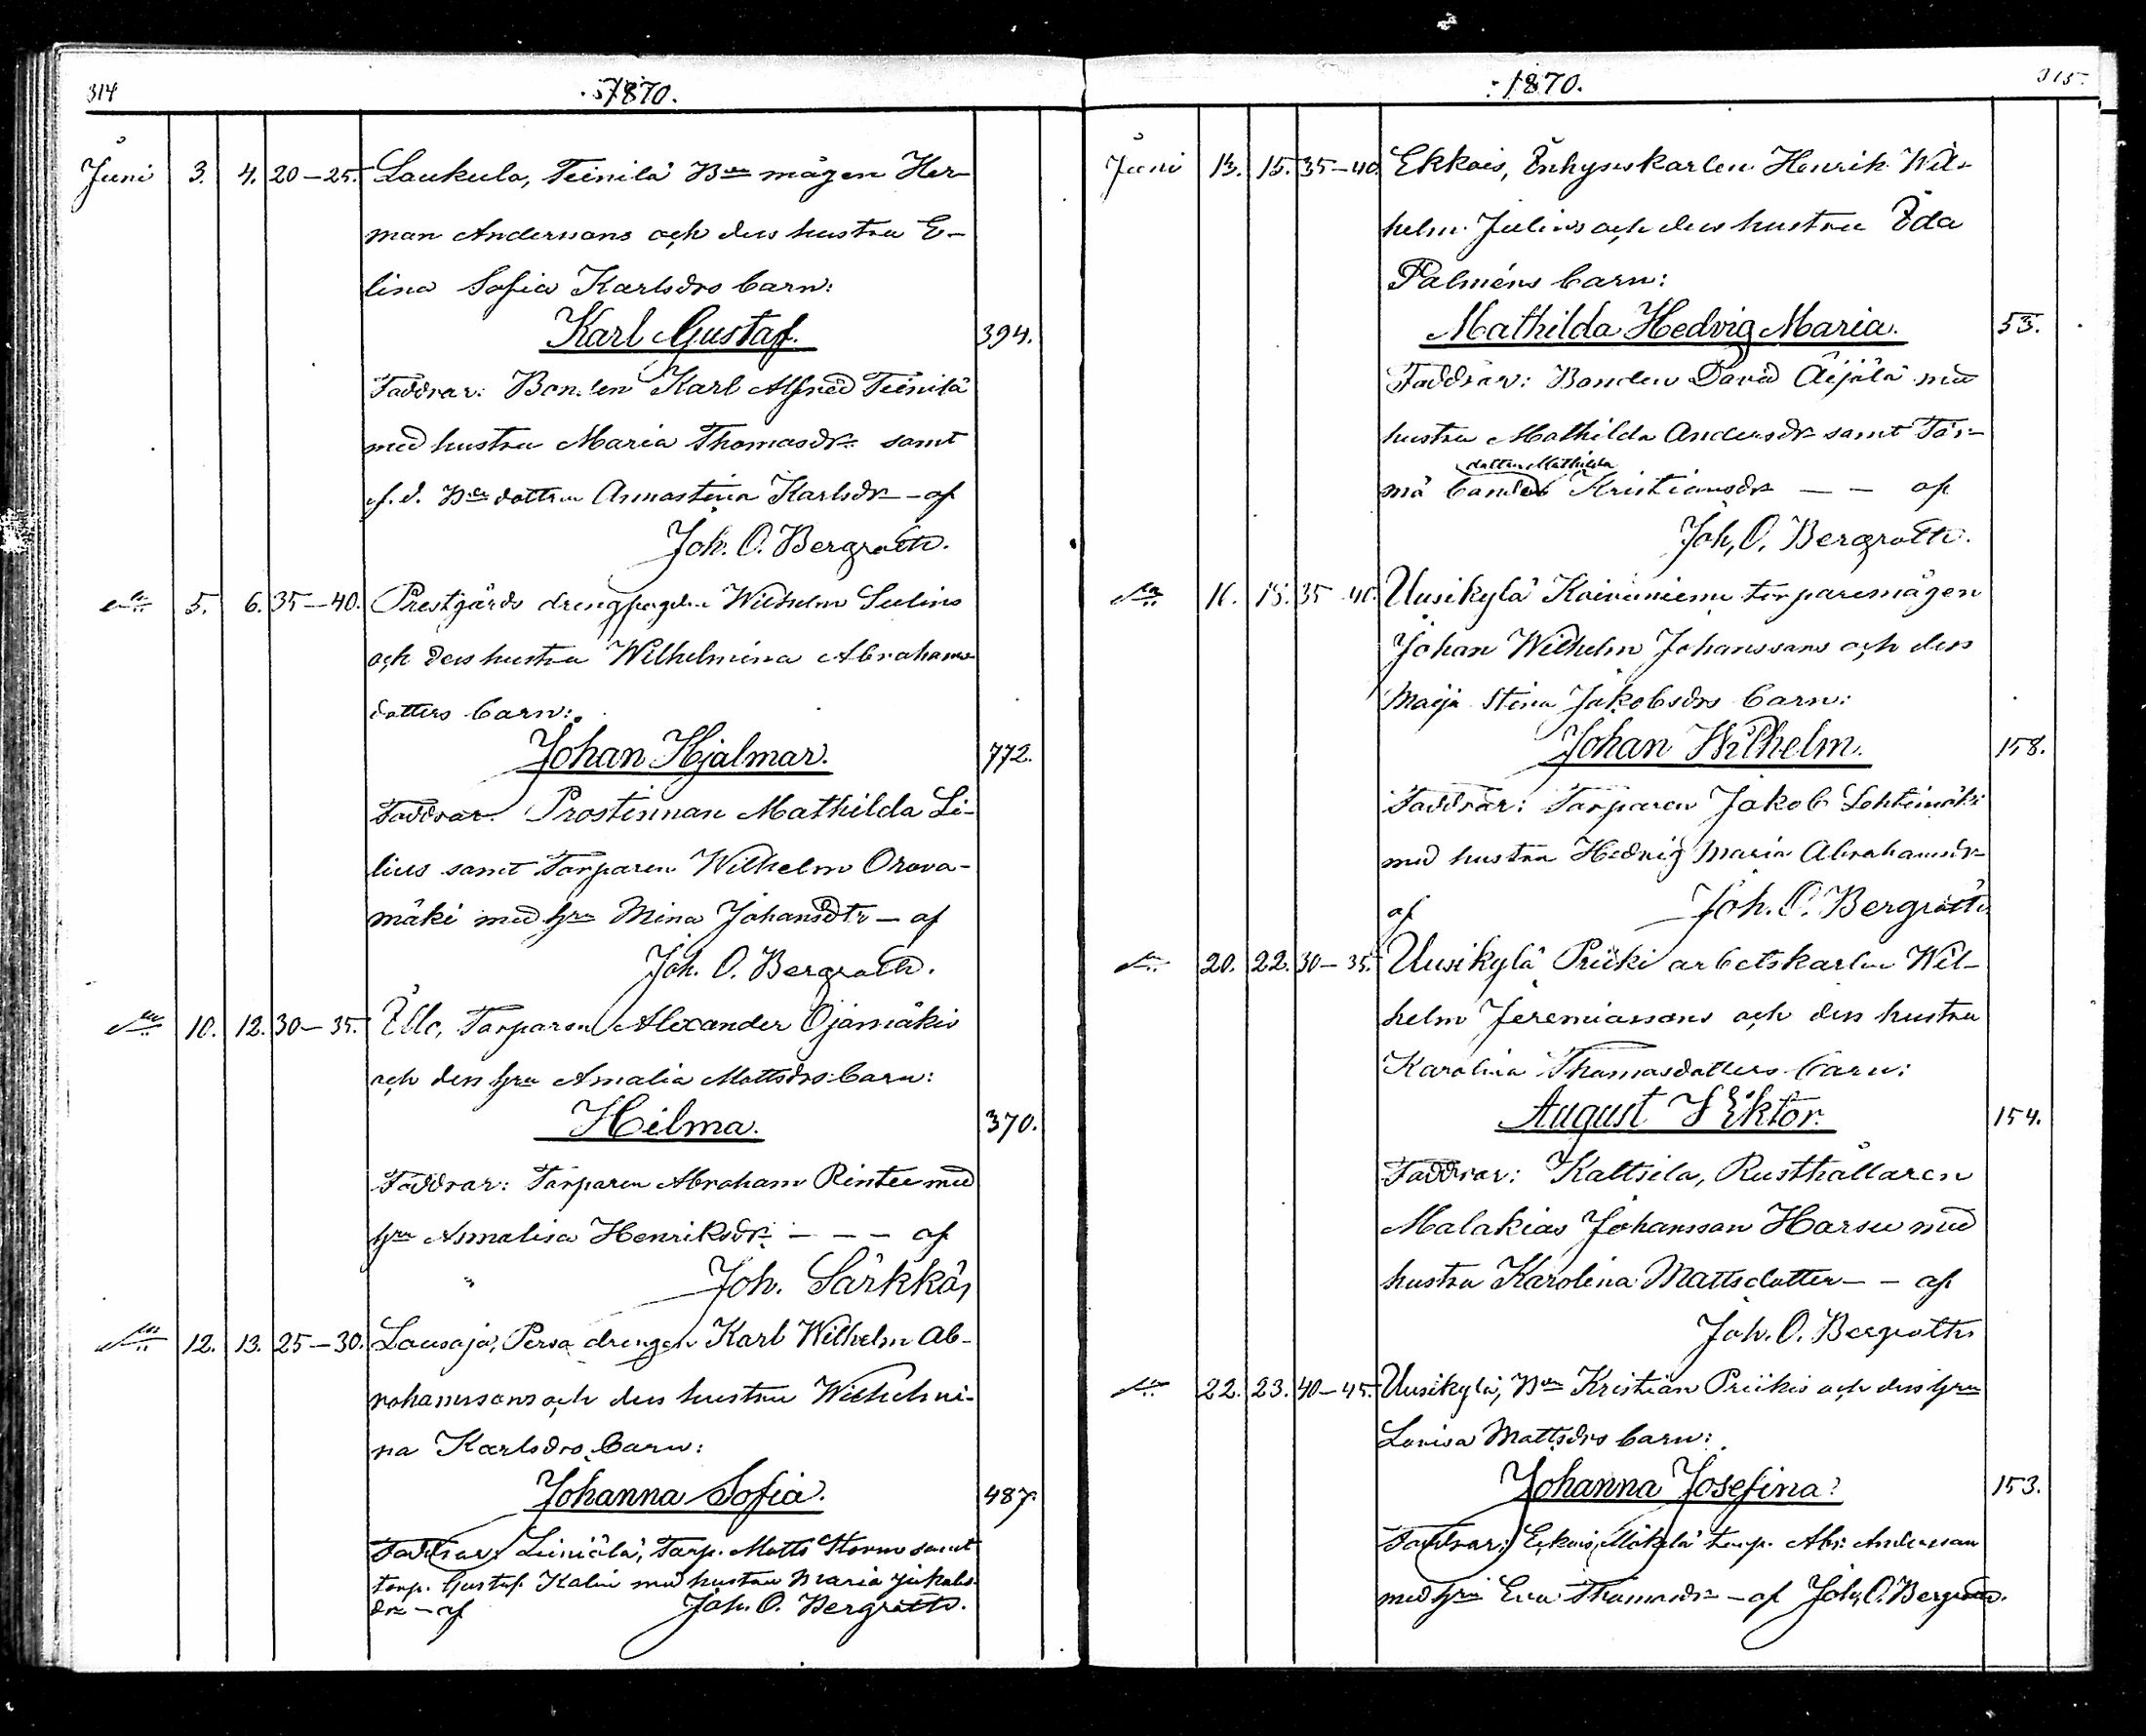 314
1870.
Juni 3. 4. 20–25. Laukula, Teinilä Bde mågen Her-
man Anderssons och dess hustru E-
lina Sofia Karlsdrs barn:
Karl Gustaf. 394.
Faddrar: Bonden Karl Alfred Teinilä
med hustru Maria Thomasdr samt
f.d. Bde dottren Annastina Karlsdr – af
Joh. O. Bergroth.
5. 6. 35–40. Prestgårds Wilhelm
och dess hustru Wilhelmina Abrahams-
dotters barn:
Johan Hjalmar. 772.
Faddrar: Prostinnan Mathilda Li-
lius samt Torparen Wilhelm Orava-
mäki med hru Mina Johansdtr – af
Joh. O. Bergroth.
10. 12. 30–35. Torparen Alexander Ojamäkis
och dess hru Amalia Mattsdrs barn:
Hilma. 370.
Faddrar: Torparen Abraham Rintee med
hru Annalisa Henriksdr – – – af
Joh. Särkkä,
12. 13. 25–30. Lausaja, Persa drengen Karl Wilhelm Ab-
rahamssons och dess hustru Wilhelmi-
na Karlsdrs barn:
Johanna Sofia. 487.
Faddrar: Torp. Matts Storm samt
torp. Gustaf Kalin med hustru Maria Jakobs-
dr – af Joh. O. Bergroth.
315
1870.
Juni 13. 15. 35–40. Ekkois, Inhyseskarlen Henrik Wil-
helm Julins och dess hustru Ida
Palméns barn:
Mathilda Hedvig Maria. 53.
Faddrar: Bonden David Äijälä med
hustru Mathilda Andersdr samt Tor-
dottren Mathilda
mä Kristiansdr – – af
Joh. O. Bergroth.
35–40. Uusikylä Koivuniemi torparemågen
Johan Wilhelm Johanssons och dess
Maija Stina Jakobsdrs barn:
Johan Wilhelm. 158.
Faddrar: Torparen Jakob Lehtimäki
med hustru Hedvig Maria Abrahamsdr
af Joh. O. Bergroth
20. 22. 30–35. Uusikylä Priiki arbetskarlen Wil-
helm Jeremiassons och dess hustru
Karolina Thomasdotters barn:
August Viktor. 154.
Faddrar: Kaltsila, Rusthållaren
Malakias Johansson Harsu med
hustru Karolina Mattsdotter – – af
Joh. O. Bergroth
22. 23. 40–45. Uusikylä, Bdn Kristian Priikis och dess hru
Lovisa Mattsdrs barn:
Johanna Josefina. 153.
Faddrar: Eckois, Mäkelä torp. Abr. Andersson
med hru Eva Thomasdr – af Joh. O. Bergroth.